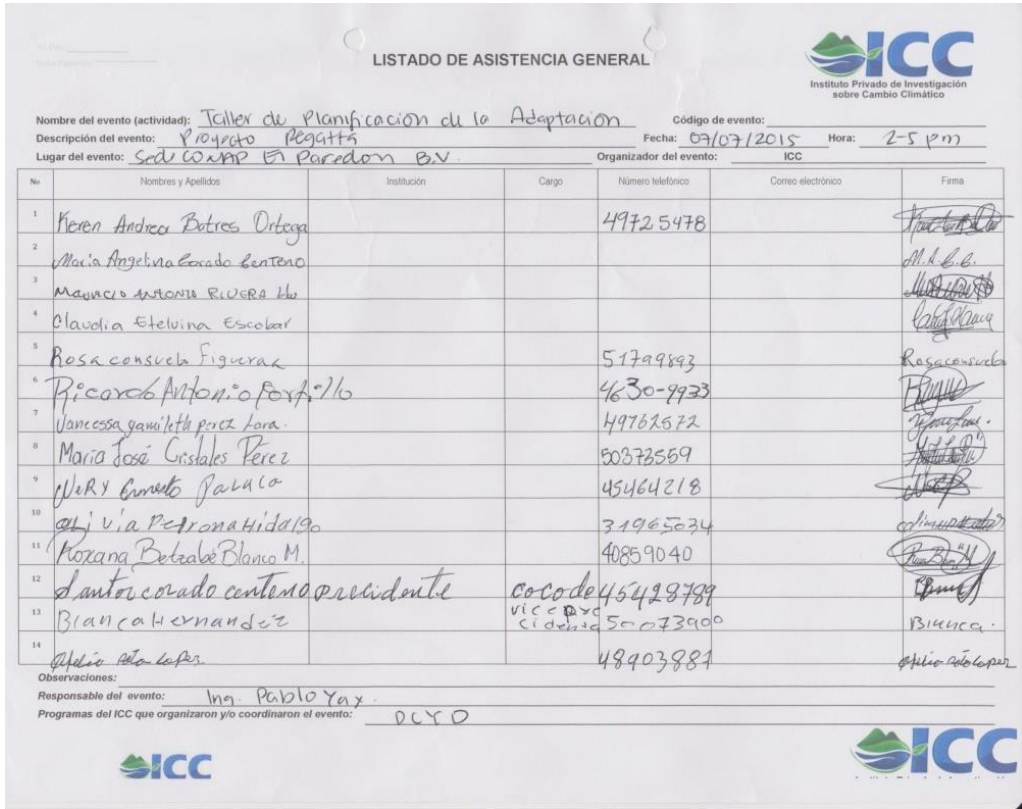 ICC
Instituto Privado de Investigación
sobre Cambio Climático
LISTADO DE ASISTENCIA GENERAL
Nombre del evento (actividad): Taller de Planificación de la Adaptación Código de evento:
Descripción del evento: Proyecto Regatta Fecha: 07/07/2015 Hora: 2-5 pm
Lugar del evento: Sede CONAP El Paredon B.V. Organizador del evento: ICC
No Nombres y Apellidos Institución Cargo Número telefónico Correo electrónico Firma
1 Keren Andrea Batres Ortega 49725478
2 Maria Angelina Corado Centeno M.A.C.C.
3 Mauricio Antonio Rivera
4 Claudia Etelvina Escobar
5 Rosa consuelo Figueroa 51799893 Rosaconsuelo
6 Ricardo Antonio Portillo 4630-9933
7 Vanessa yamileth perez Lara. 49762572
8 María José Cristales Pérez 50373559
9 Nery Ernesto 45464218
10 Olivia Petrona Hidalgo 31965034
11 Roxana Betzabé Blanco M. 40859040
12 Santor corado centeno precidente cocode 45428789
13 Blanca Hernandez vicepre
cidenta 50073900 Blanca.
14 Ofelio soto Lopez 48903881 Ofelio soto Lopez
Observaciones:
Responsable del evento: Ing. Pablo Yax.
Programas del ICC que organizaron y/o coordinaron el evento: DCYD
ICC
ICC